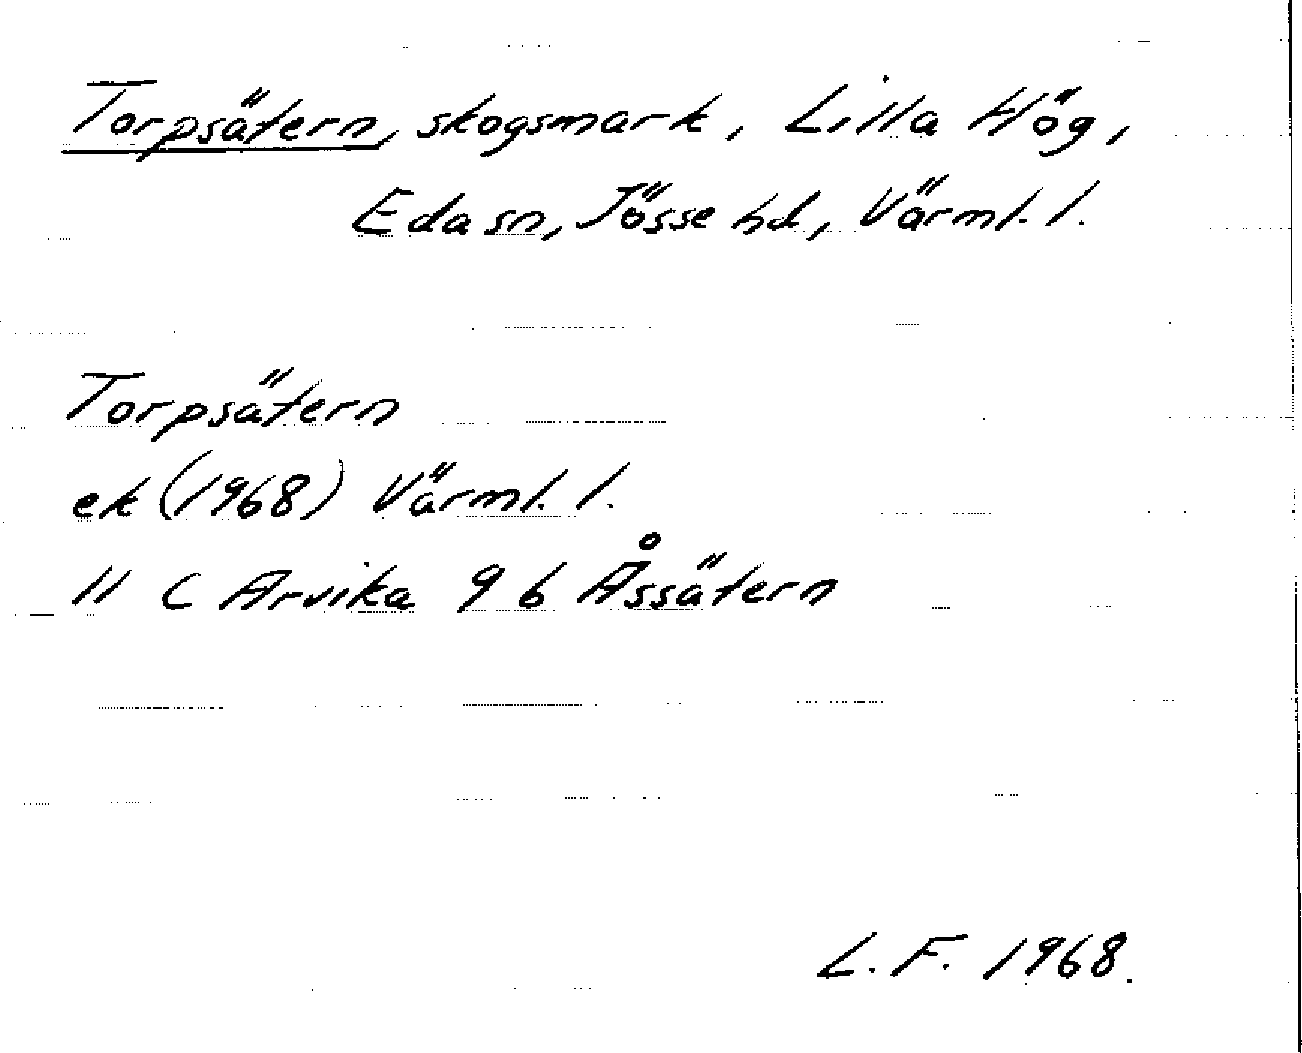 Torpsätern, skogsmark, Lilla Hög,
Eda sn, Jösse hd, Värml. l.
Torpsätern
ek (1968) Värml. l.
11 C Arvika 9 b Åssätern
L. F. 1968.